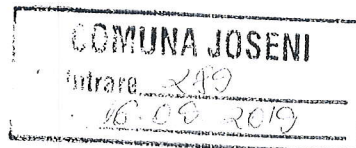 COMUNA JOSENI
Intrare 289
16.09 2019